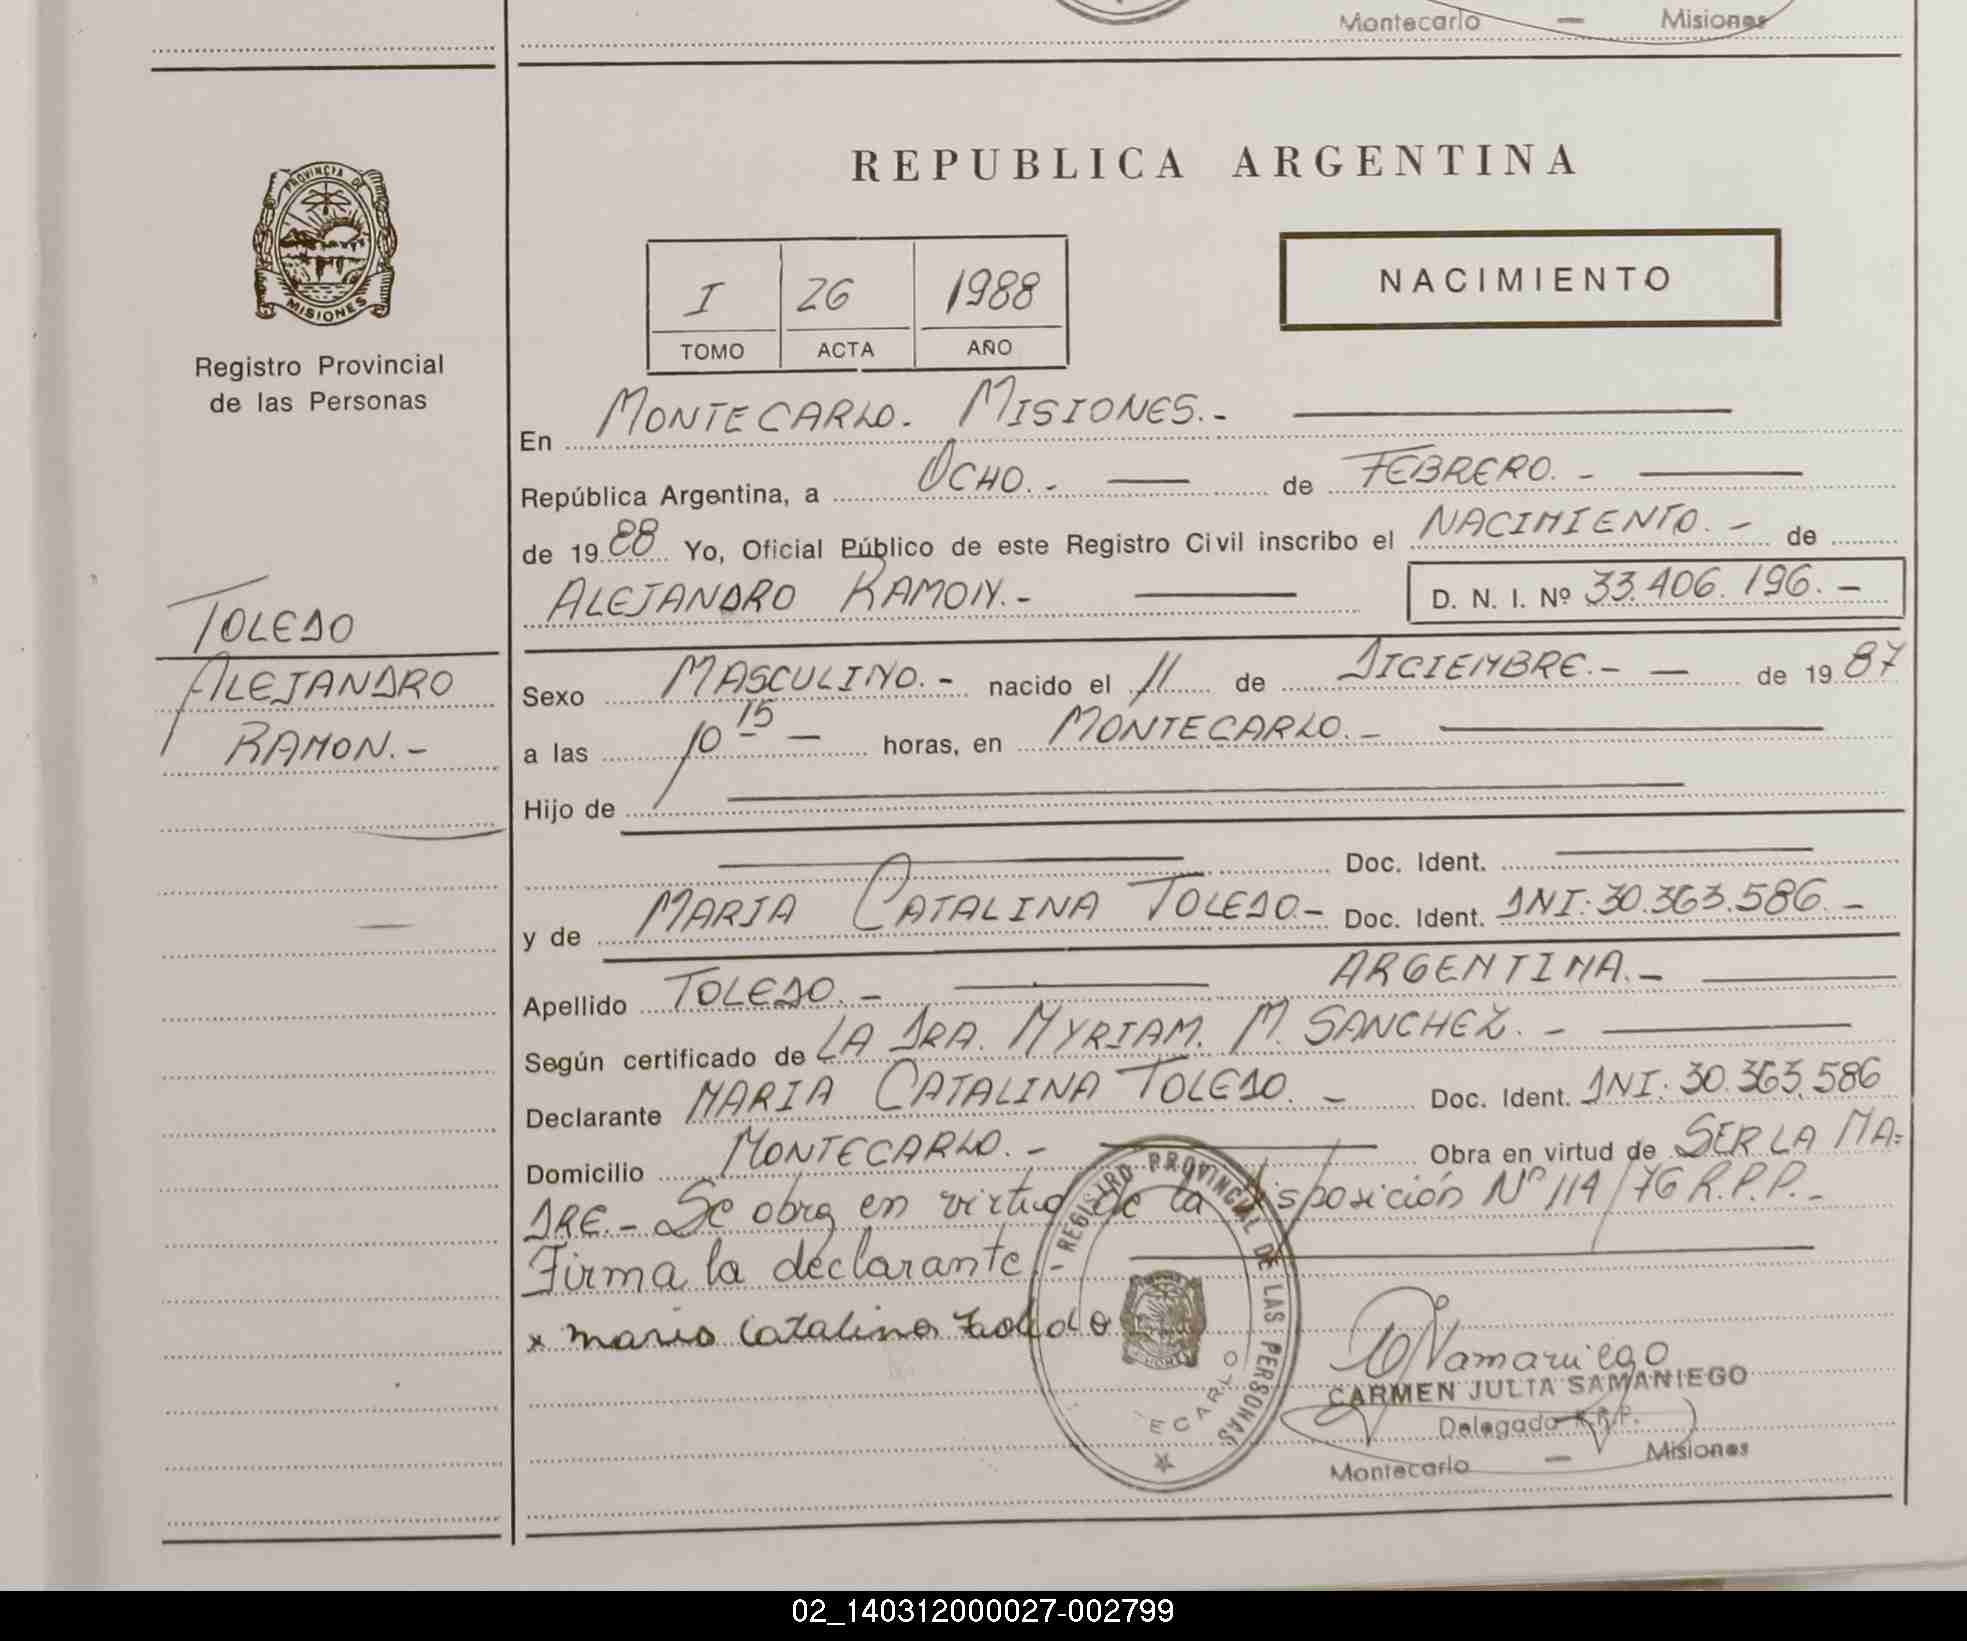 Montecarlo — Misiones
PROVINCIA DE
MISIONES
Registro Provincial
de las Personas
TOLEDO
ALEJANDRO
RAMON.-
REPUBLICA ARGENTINA
I 26 1988
TOMO ACTA AÑO
NACIMIENTO
En MONTECARLO. MISIONES.-
República Argentina, a OCHO.- de FEBRERO.-
de 1988 Yo, Oficial Público de este Registro Civil inscribo el NACIMIENTO.- de
ALEJANDRO RAMON.- D. N. I. Nº 33.406.196.-
Sexo MASCULINO.- nacido el 11 de DICIEMBRE.- — de 1987
a las 10 15 — horas, en MONTECARLO.-
Hijo de
Doc. Ident.
y de MARIA CATALINA TOLEDO.- Doc. Ident. DNI: 30.363.586.-
Apellido TOLEDO.- ARGENTINA.-
Según certificado de LA DRA. MYRIAM. M. SANCHEZ.-
Declarante MARIA CATALINA TOLEDO.- Doc. Ident. DNI: 30.363.586
Domicilio MONTECARLO.- Obra en virtud de SER LA MA=
DRE.- Se obra en virtud de la disposición Nº 114/76 R.P.P.-
Firma la declarante.-
x maria Catalina toledo
REGISTRO PROVINCIAL DE LAS PERSONAS
ECARLO
CSamaniego
CARMEN JULIA SAMANIEGO
Delegada R.R.P.
Montecarlo — Misiones
02_140312000027-002799